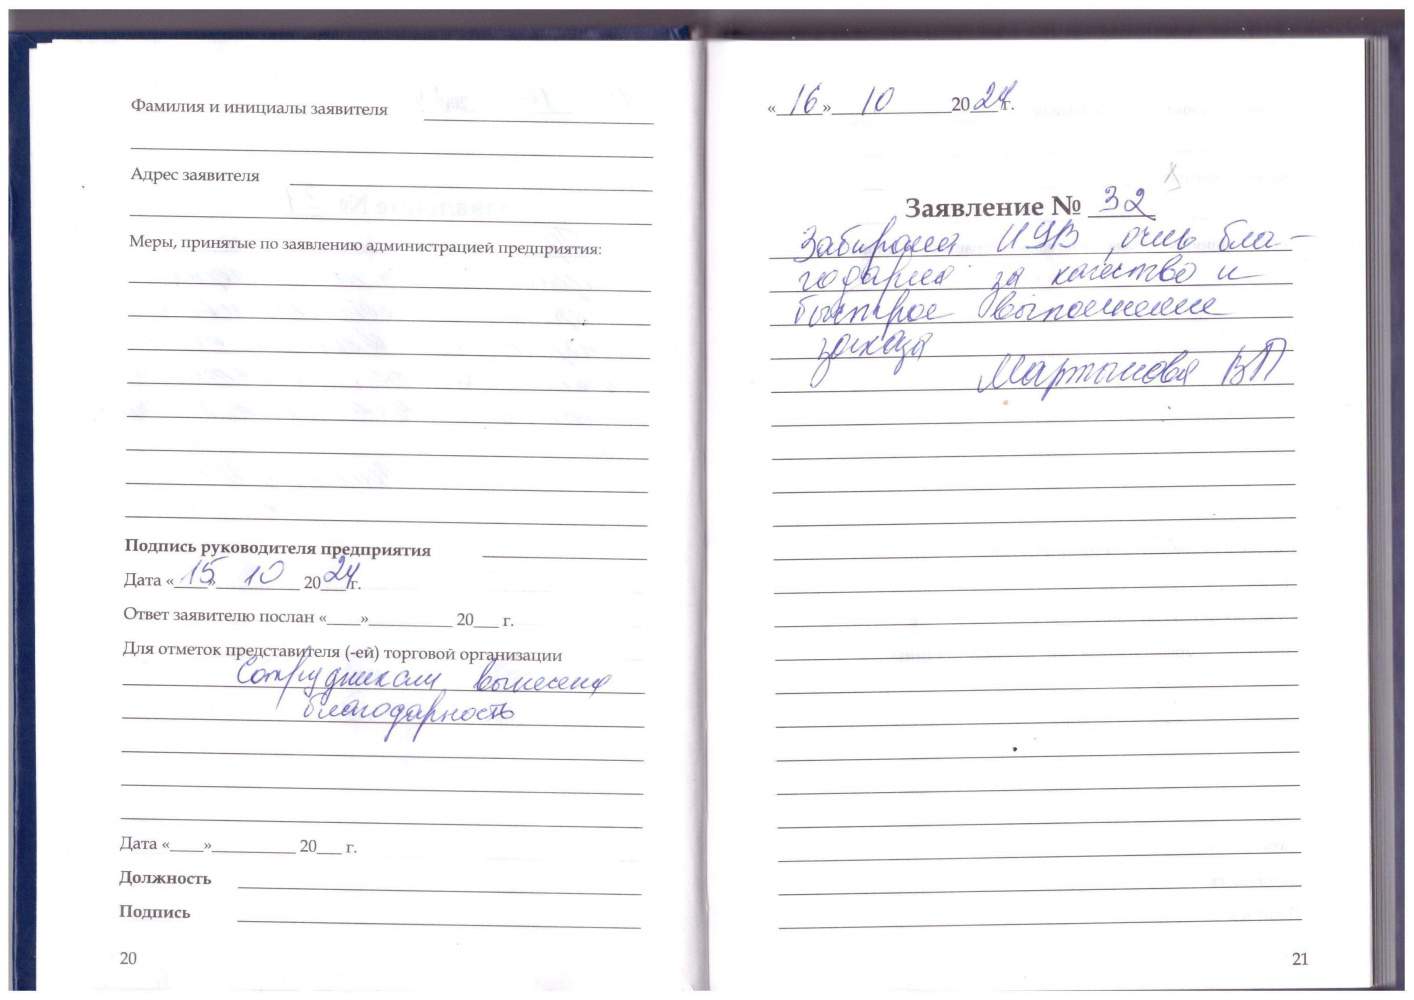 Фамилия и инициалы заявителя
Адрес заявителя
Меры, принятые по заявлению администрацией предприятия:
Подпись руководителя предприятия
Дата «15» 10 2024 г.
Ответ заявителю послан «____»__________ 20___ г.
Для отметок представителя (-ей) торговой организации
Сотрудникам вынесена
благодарность
Дата «____»__________ 20___ г.
Должность
Подпись
20
«16» 10 2024 г.
Заявление № 32
очень бла-
за качество и
быстрое выполнение
заказа
Мартынова ВП
21